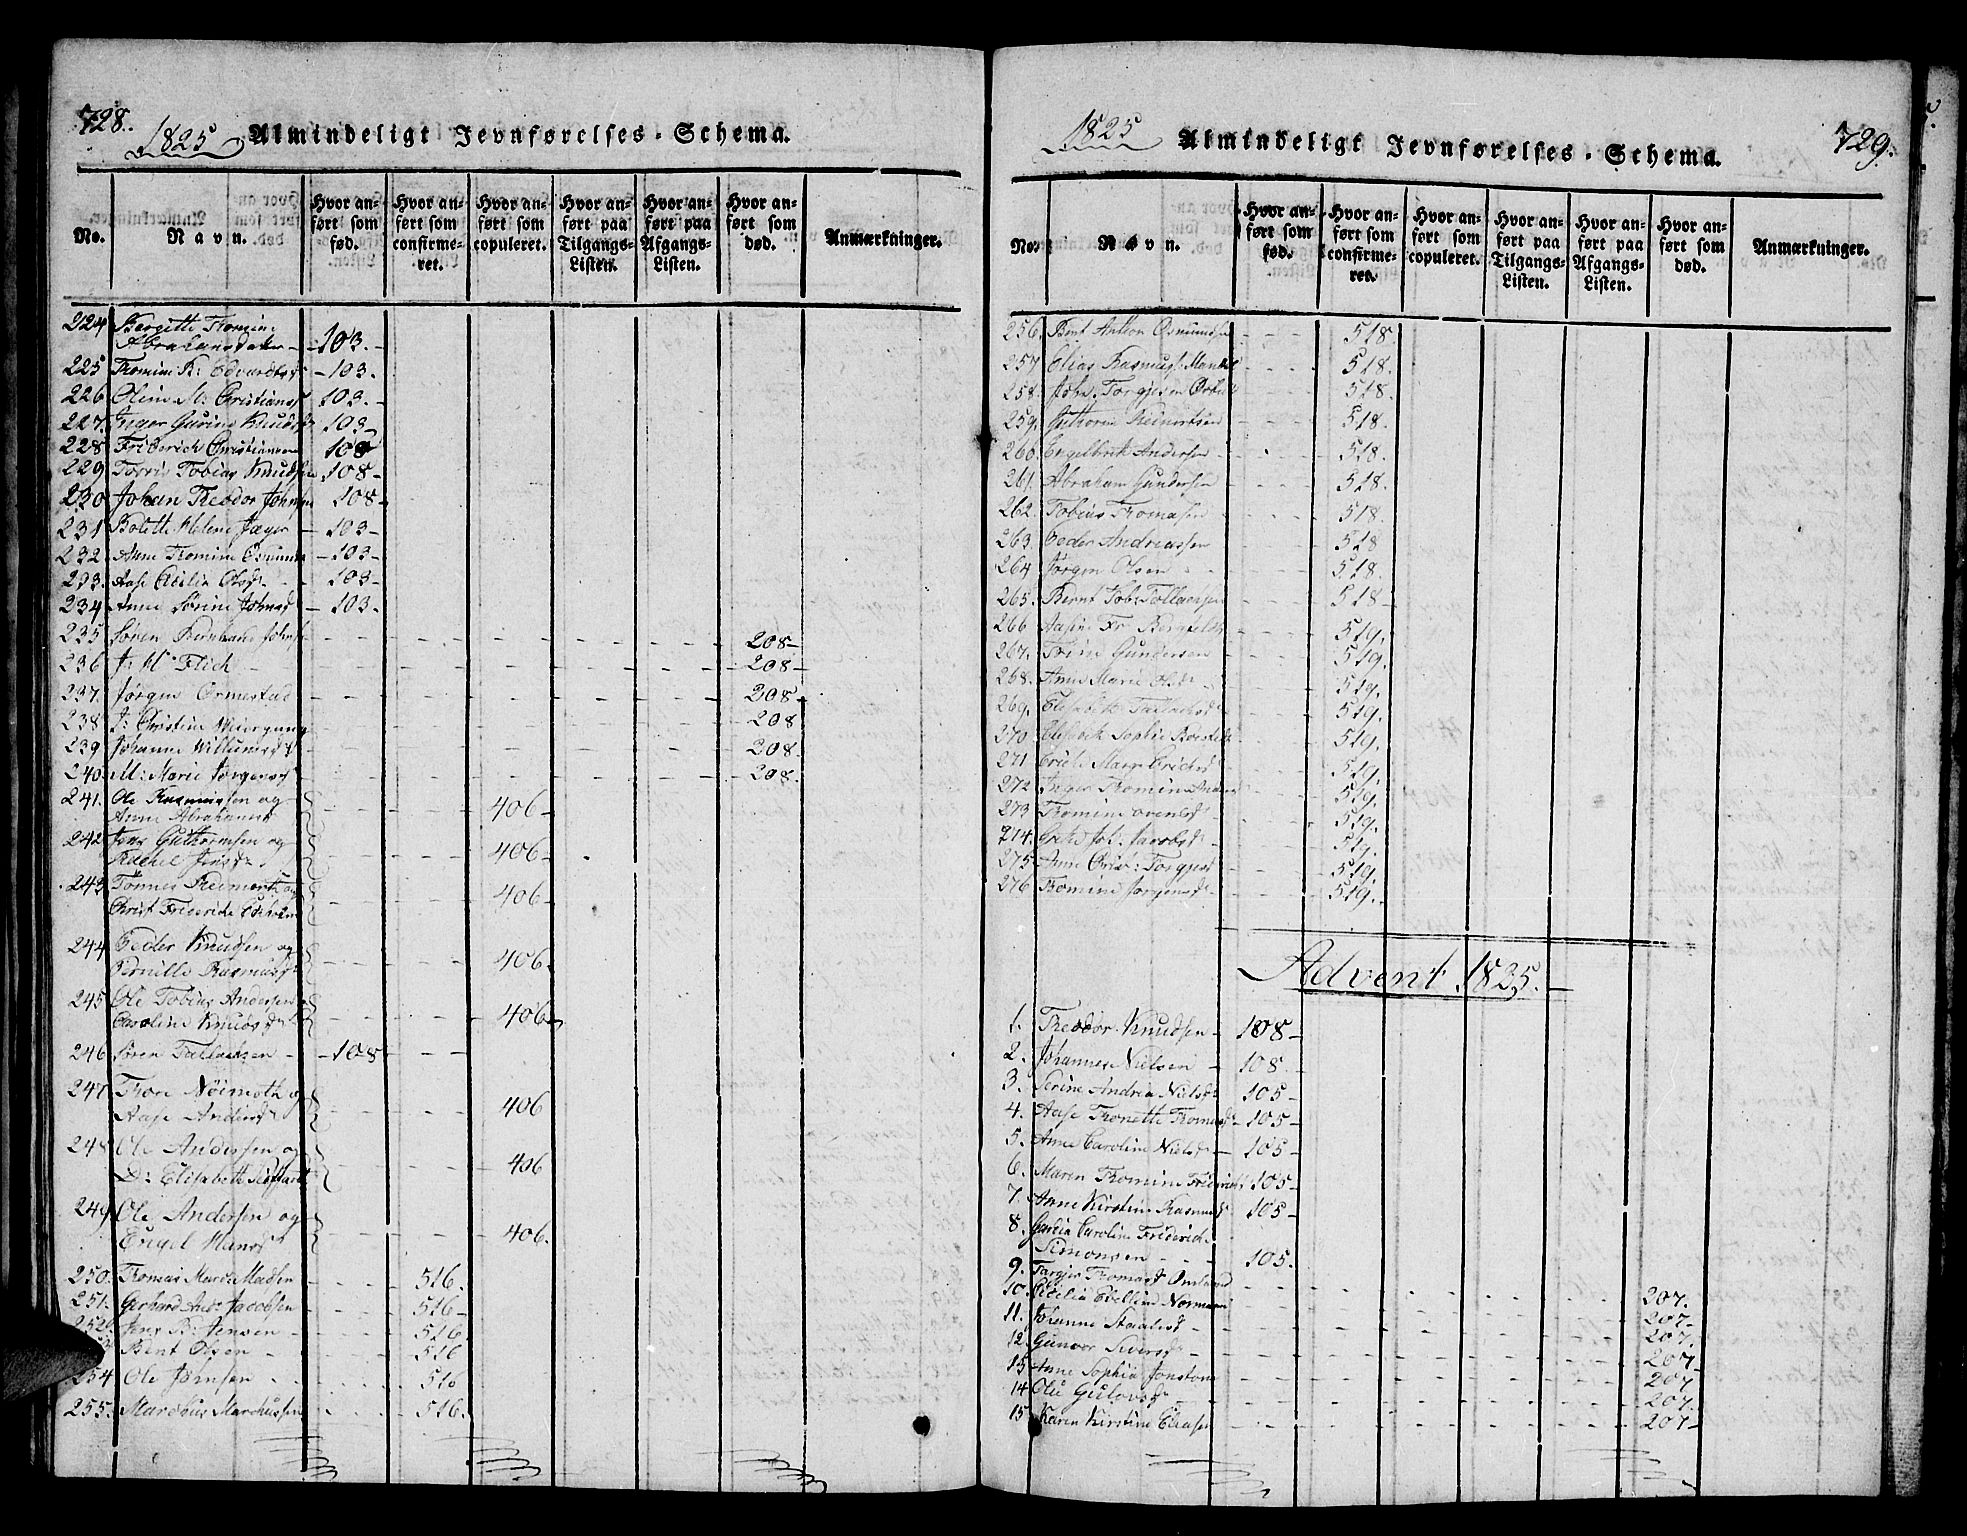 728.
1825 Almindeligt Jevnførelses-Schema.
No.
Navn.
Hvor anført som fød.
Hvor anført som confirmeret.
Hvor anført som copuleret.
Hvor anført paa Tilgangs-Listen.
Hvor anført paa Afgangs-Listen.
Hvor anført som død.
Anmærkninger.
224 Bergitte Tromine
Abrahamsdatter - 103.
225 Tromine K: Edvardsd - 103.
226 Oline M: Christiansd 103.
227. Inger Gurine Knudsd 103
228 Friderich Christiansen 108
229 Torris Tobias Knudsen 108-
230 Johan Theodor Johnsen 108-
231 Bolette Helene Jæger - 103-
232. Anne Tromine Osmunds - 103
233. Aase Cecilia Olsd - 103
234 Anne Sørine Johnsd - 103.
235 Søren Bernhard Johns 208-
236 J: M: Flich 208-
237. Jørgen Ormestad 208.
238 J: Christine Weiergang 208
239 Johanne Willumsd 208.
240. M: Marie Jørgensd 208.
241. Ole Rasmussen og
Anne Abrahamsd 406-
242 Jens Guthormsen og
Rachel Jensd 406-
243 Tønnes og
Christ Friderike 406-
244 Peder Knudsen og
Pernille Rasmusd 406-
245 Ole Tobias Andersen
Caroline Knudsd 406-
246 Søren Tallachsen - 108
247 Thore og
Aase Andersd 406
248 Ole Anderssen og
D: Elisabeth 406
249 Ole Andersen og
Engel Hansd 406.
250. Thomas Mard: Madsen 516.
251. Gerhard And: Jacobsen 516-
252 Jens B: Jensen - 516
Bent Olsen 516
254 Ole Johnsen 516
255. Marcus Marchussen 516.
1825 Almindeligt Jevnførelses-Schema.
729.
No.
Navn.
Hvor anført som fød.
Hvor anført som confirmeret.
Hvor anført som copuleret.
Hvor anført paa Tilgangs-Listen.
Hvor anført paa Afgangs-Listen.
Hvor anført som død.
Anmærkninger.
256 Bent Anton Osmundsen 518.
257 Elias Rasmus: 518.
258. John Torgjesen 518.
259. Guttorm Reinertsen 518.
260 Engelbrik Andersen 518.
261. Abraham Gundersen 518.
262. Tobias Thomasen 518.
263. Peder Andreassen 518
264 Jørgen Olsen 518.
265. Bernt Tob: Tollaksen 518-
266 Aasine Fr Bergfeldt 519.
267. Trine Gundersen 519.
268. Anne Marie Olsd 519.
269. Elisabeth Tallachsd 519.
270 Elisbeth Sophie 519.
271 Marg: Erichsd 519.
272 Inger Tromine Anders 519.
273 Tromine Svensd 519.
274. Grethe Joh: Jacobsd 519.
275 Anne Torgjesd 519.
276 Tromine Jørgensd 519.
Advent 1825.
1. Theodor Knudsen - 108-
2. Johannes Nielsen - 108.
3. Serine Andrea Nielsd 105-
4. Aase Tronette Thomasd 105-
5. Anne Caroline Nielsd - 105-
6. Maren Tromine Friderichs 105-
7. Anne Kirstine Rasmusd 105-
8. Caroline Friderich:
Simonsen 105.
9. Thomasd Omland
10. Cecilia Normann 207.
11. Johanne Staalesd 207-
12. Gunvor Siversd 207.
13 Anne Sophia 207-
14 Olu Gulovsd 207
15 Karen Kirstine Eliasen 207-